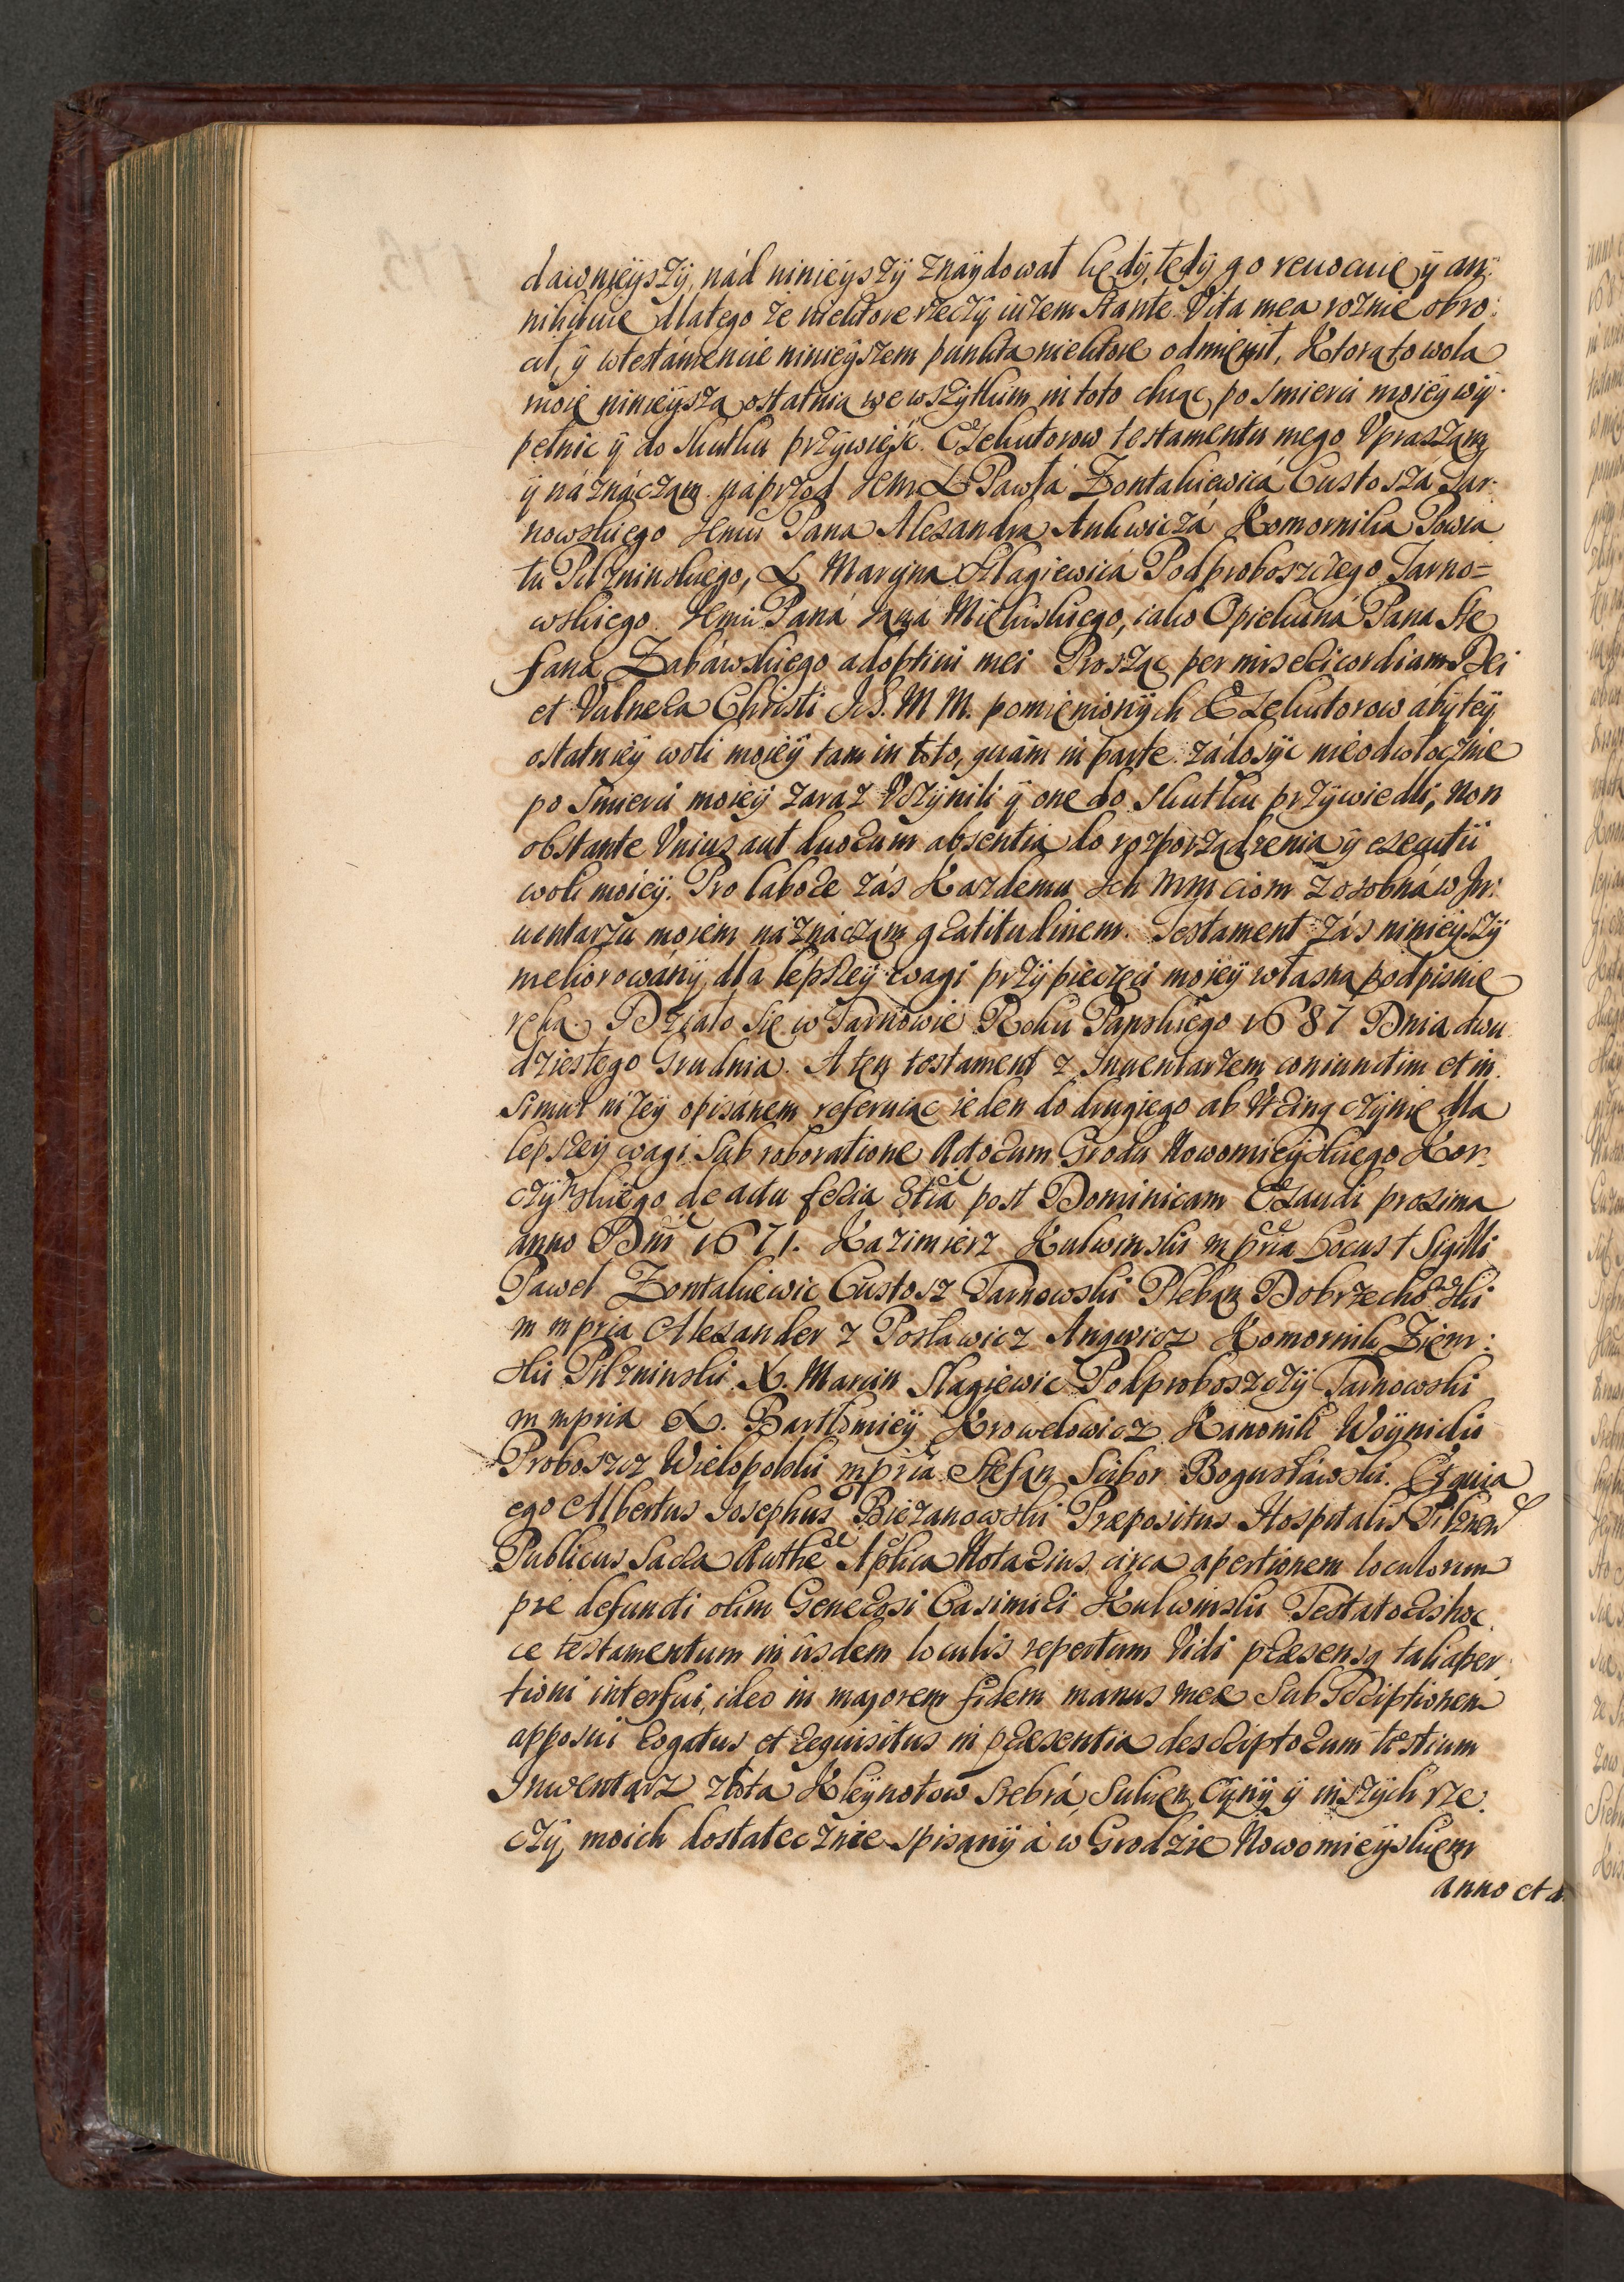 dawnieÿszÿ, nád ninieÿszÿ znaÿdował kędÿ, tedÿ go reuocuię ÿ an:
nihiluię dlatego ze niektore rzeczÿ iuzem stante Vita mea roznie obro:
cił, ÿ wtestámencie ninieÿszem punkta niektore odmięnił, Ktorą to wolą
moię ninieÿszą ostatnią we wszÿtkim in toto chcąc po śmierci moieÿ wÿ:
pełnic ÿ do skutku przÿwieść. Exekutorow testamentu mego Vpraszam
ÿ náznáczam náprzod Jemci X Pawłá Zontakiewicá Custoszá Tar:
nowskiego Jemci Pana Alexandra Ankwiczá Komornika Powia
tu Pilzninskiego, X Marcina Szlagiewicá Podproboszczego Tarno=
wskiego. Jemci Paná Jana Micińskiego, iako Opiekuná Pana Ste
fana Zabáwskiego adoptivi mei Prosząc per misericordiam Dei
et Vulnera Christi Ich M M. pomięnionÿch Exekutorow ábÿ teÿ
ostatnieÿ woli moieÿ tam in toto, quam in parte zádosÿc nieodwłocznie
po śmierci moieÿ zaraz Vczÿnili ÿ one do skutku przÿwiedli, non
obstante Vnius aut duorum absentia do rozporządzenia ÿ exequtii
woli moieÿ. Pro labore zás Kazdemu Ich Mmciom z osobná w In:
uentarzu moiem náznáczam gratitudinem. Testament zás ninieÿszÿ
meliorowánÿ, dla lepszeÿ wagi przÿ pieczęci moieÿ własną podpisuię
ręką. Działo się w Tarnowie Roku Panskiego 1687 Dnia dwu
dziestego Grudnia. A ten testament z Inuentarzem coniunctim et in
simul nizeÿ opisánem referuiąc ieden do drugiego ab Vtrinq czÿnię dla
lepszeÿ wagi sub roboratione Actorum Grodu Nowomieÿskiego Kor:
czÿnskiego de actu feria 3tia post Dominicam Exaudi proxima
anno Dni 1671. Kazimierz Kulwinski mpria Locus † Sigilli
Paweł Zontakiewic Custosz Tarnowski Pleban Dobrzechowski
m mpria Alexander z Posławicz Angwicz Komornik Ziem:
ski Pilzninski X. Marcin Slagiewic Podproboszczÿ Tarnowski
m mpria X. Bartłomieÿ Krowelowicz Kanonik Woÿnicki
Proboszcz Wielopolski mpria Stefan Scibor Bogusłáwski. Et quia
ego Albertus Josephus Biezanowski Præpositus Hospitalis Pilznen
Publicus Sacra Authe Aplica Notarius circa apertionem loculorum
præ defuncti olim Generosi Casimiri Kulwinski Testatoris hoc
ce testamentum in iisdem loculis repertum Vidi præsensq tali aper
tioni interfui, ideo in majorem fidem manus meæ Subscriptionem
apposui rogatus et requisitus in præsentia descriptorum testium
Inwentarz złota Kleÿnotow srebrá, sukien, cÿnÿ ÿ inszÿch rze:
czÿ moich dostatecznie spisanÿ á w Grodzie Nowomieÿskiem
anno et